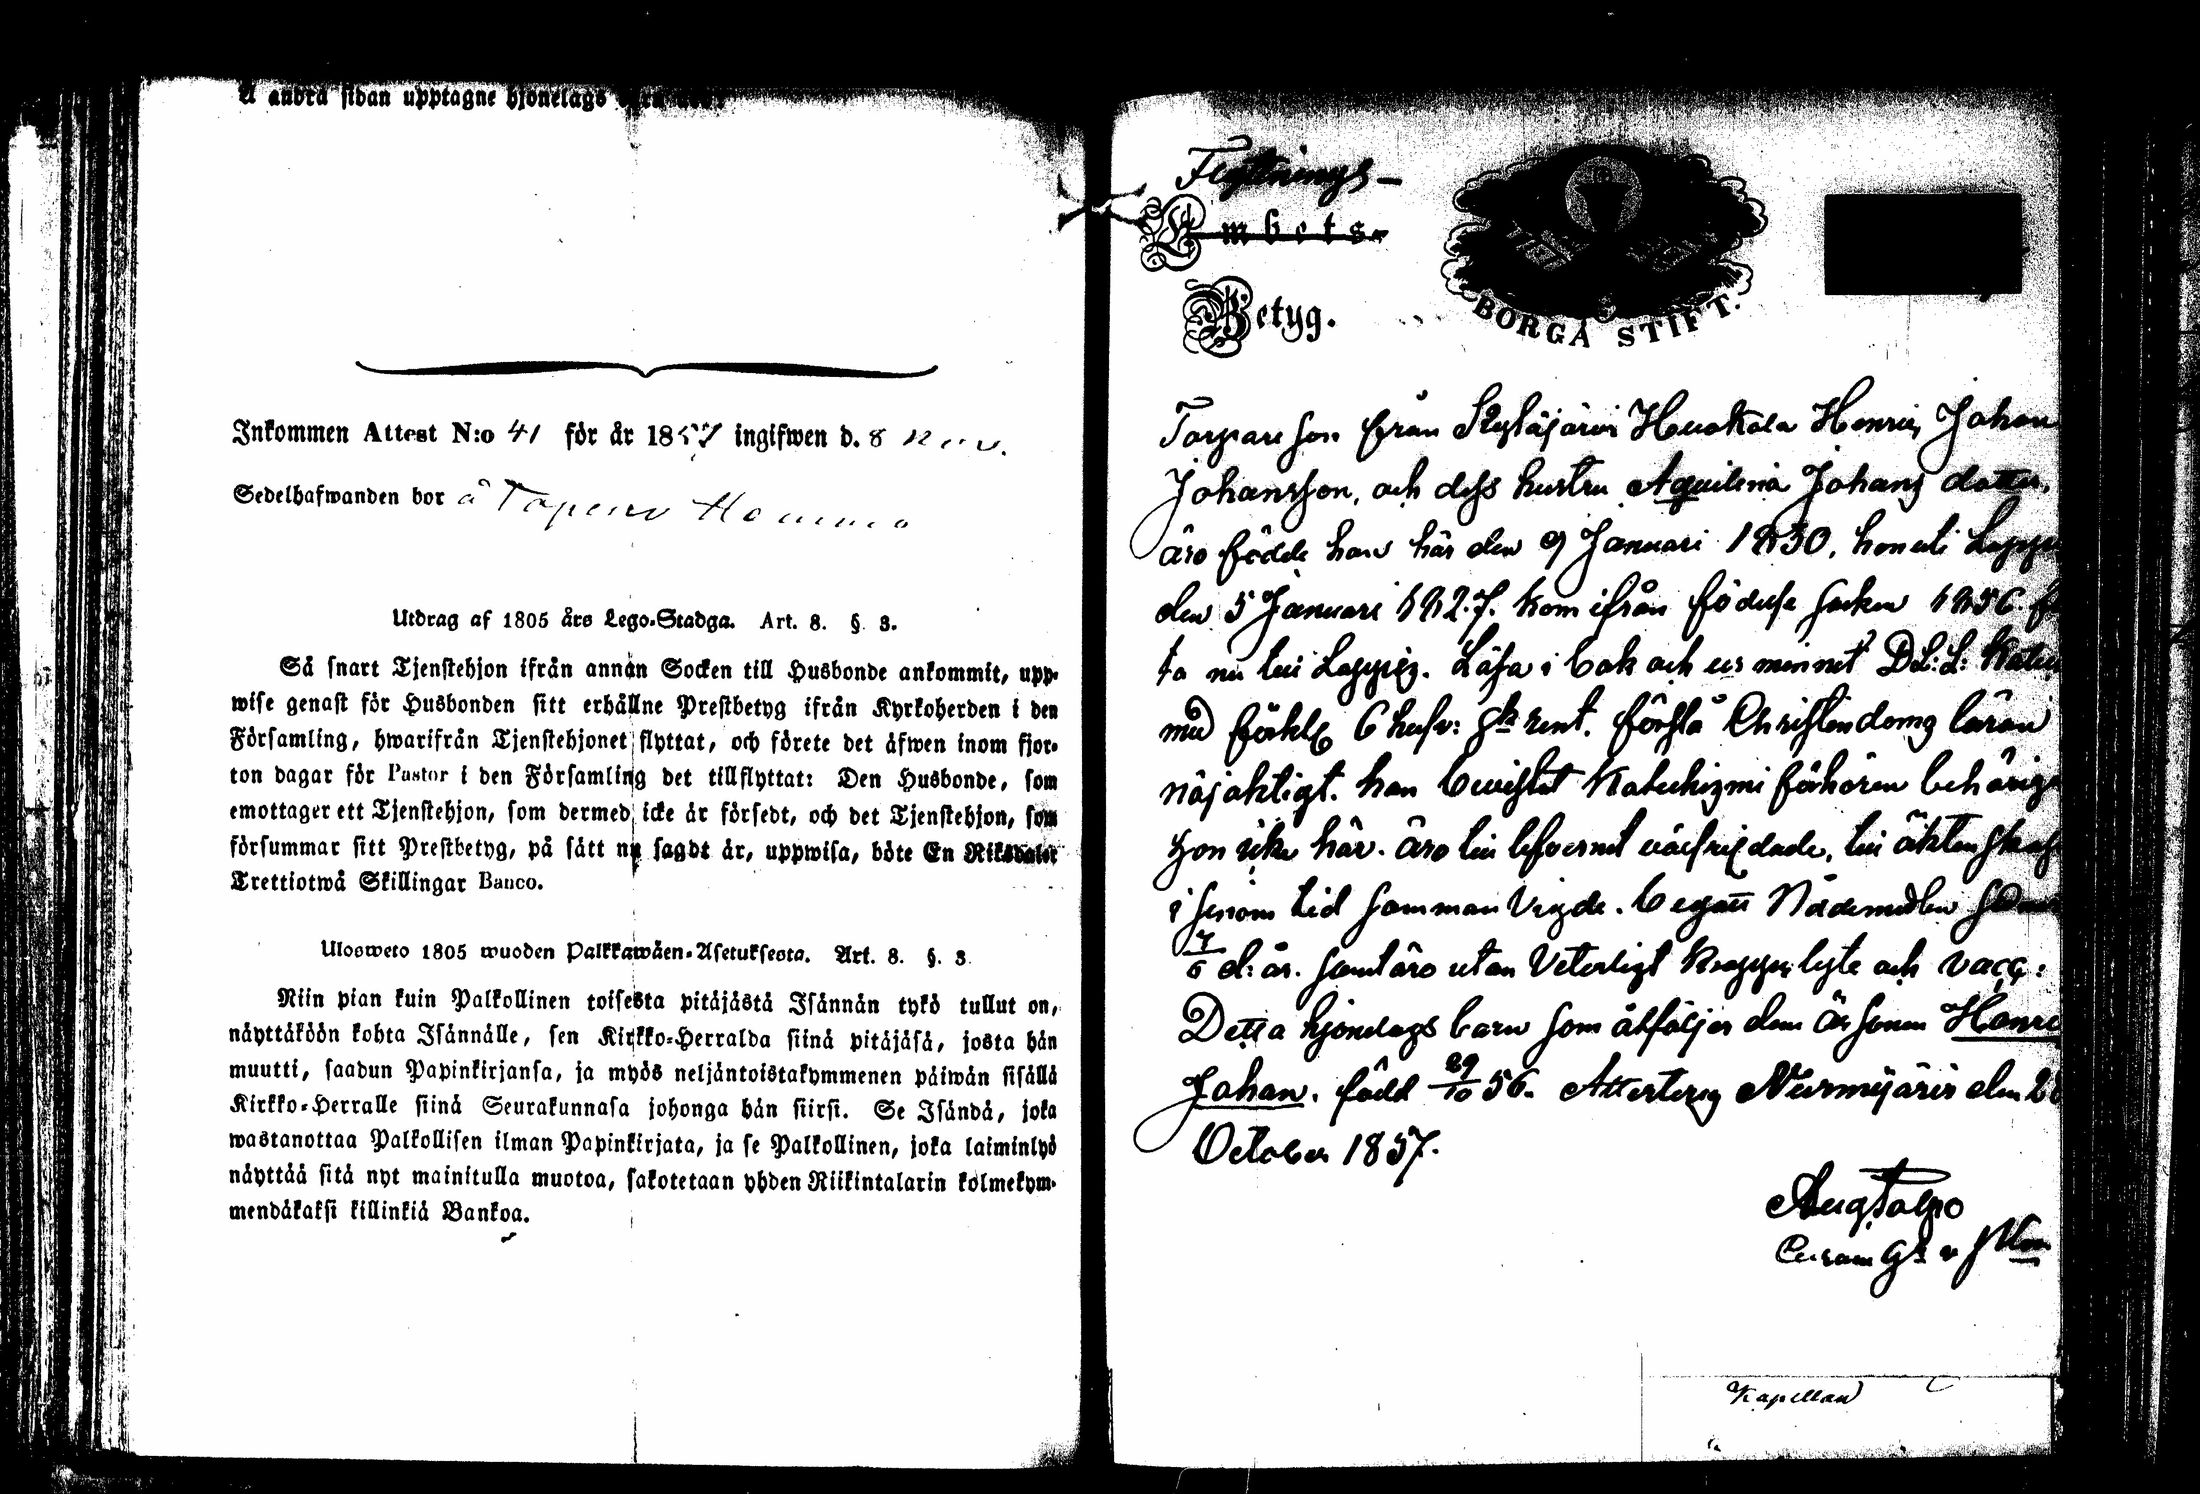 Å andra sidan upptagne hjonelags
Inkommen Attest N:o 41 för år 1857 ingifwen d. 8 nov.
Sedelhafwanden bor å
Utdrag af 1805 års Lego-Stadga. Art. 8. §. 3.
Så snart Tjenstehjon ifrån annan Socken till Husbonde ankommit, upp-
wise genast för Husbonden sitt erhållne Prestbetyg ifrån Kyrkoherden i den
Församling, hwarifrån Tjenstehjonet flyttat, och förete det äfwen inom fjor-
ton dagar för Pastor i den Församling det tillflyttat: Den Husbonde, som
emottager ett Tjenstehjon, som dermed icke är försedt, och det Tjenstehjon, som
försummar sitt Prestbetyg, på sätt nu sagdt är, uppwisa, böte En Riksdaler
Trettiotwå Skillingar Banco.
Ulosweto 1805 wuoden Palkkawäen-Asetuksesta. Art. 8. §. 3
Niin pian kuin Palkollinen toisesta pitäjästä Isännän tykö tullut on,
näyttäköön kohta Isännälle, sen Kirkko-Herralda siinä pitäjäsä, josta hän
muutti, saadun Papinkirjansa, ja myös neljäntoistakymmenen päiwän sisällä
Kirkko-Herralle siinä Seurakunnasa johonga hän siirsi. Se Isändä, joka
wastanottaa Palkollisen ilman Papinkirjata, ja se Palkollinen, joka laiminlyö
näyttää sitä nyt mainitulla muotoa, sakotetaan yhden Riikintalarin kolmekym-
mendäkaksi killinkiä Bankoa.
Flyttnings-
Ambets-
Betyg.
BORGÅ STIFT.
Torpare son från Henric Johan
Johansson, och dess hustru Aquilina Johans dotter,
äro födde han här den 9 Januari 1830, hon uti
den 5 Januari 1827. kom ifrån födelse socken 1856.
ta nu till Loppis. Läsa i bok och ur minnet D:L:L:
med förkl. förstå Christendoms läran
nöjaktigt. han bevistat Katechizmi förhören
hon icke här. äro till lefvernet till äktenskap
i sinom tid samman Vigde. begått Nådemedlen
7/6 d: år. samt äro utan Veterligt lyte och vacc:
Detta hjonelags barn som åtföljer dem är sonen Henric
Johan. född 29/10 56. Attesteras Nurmijärvi den
October 1857.
Kapellan